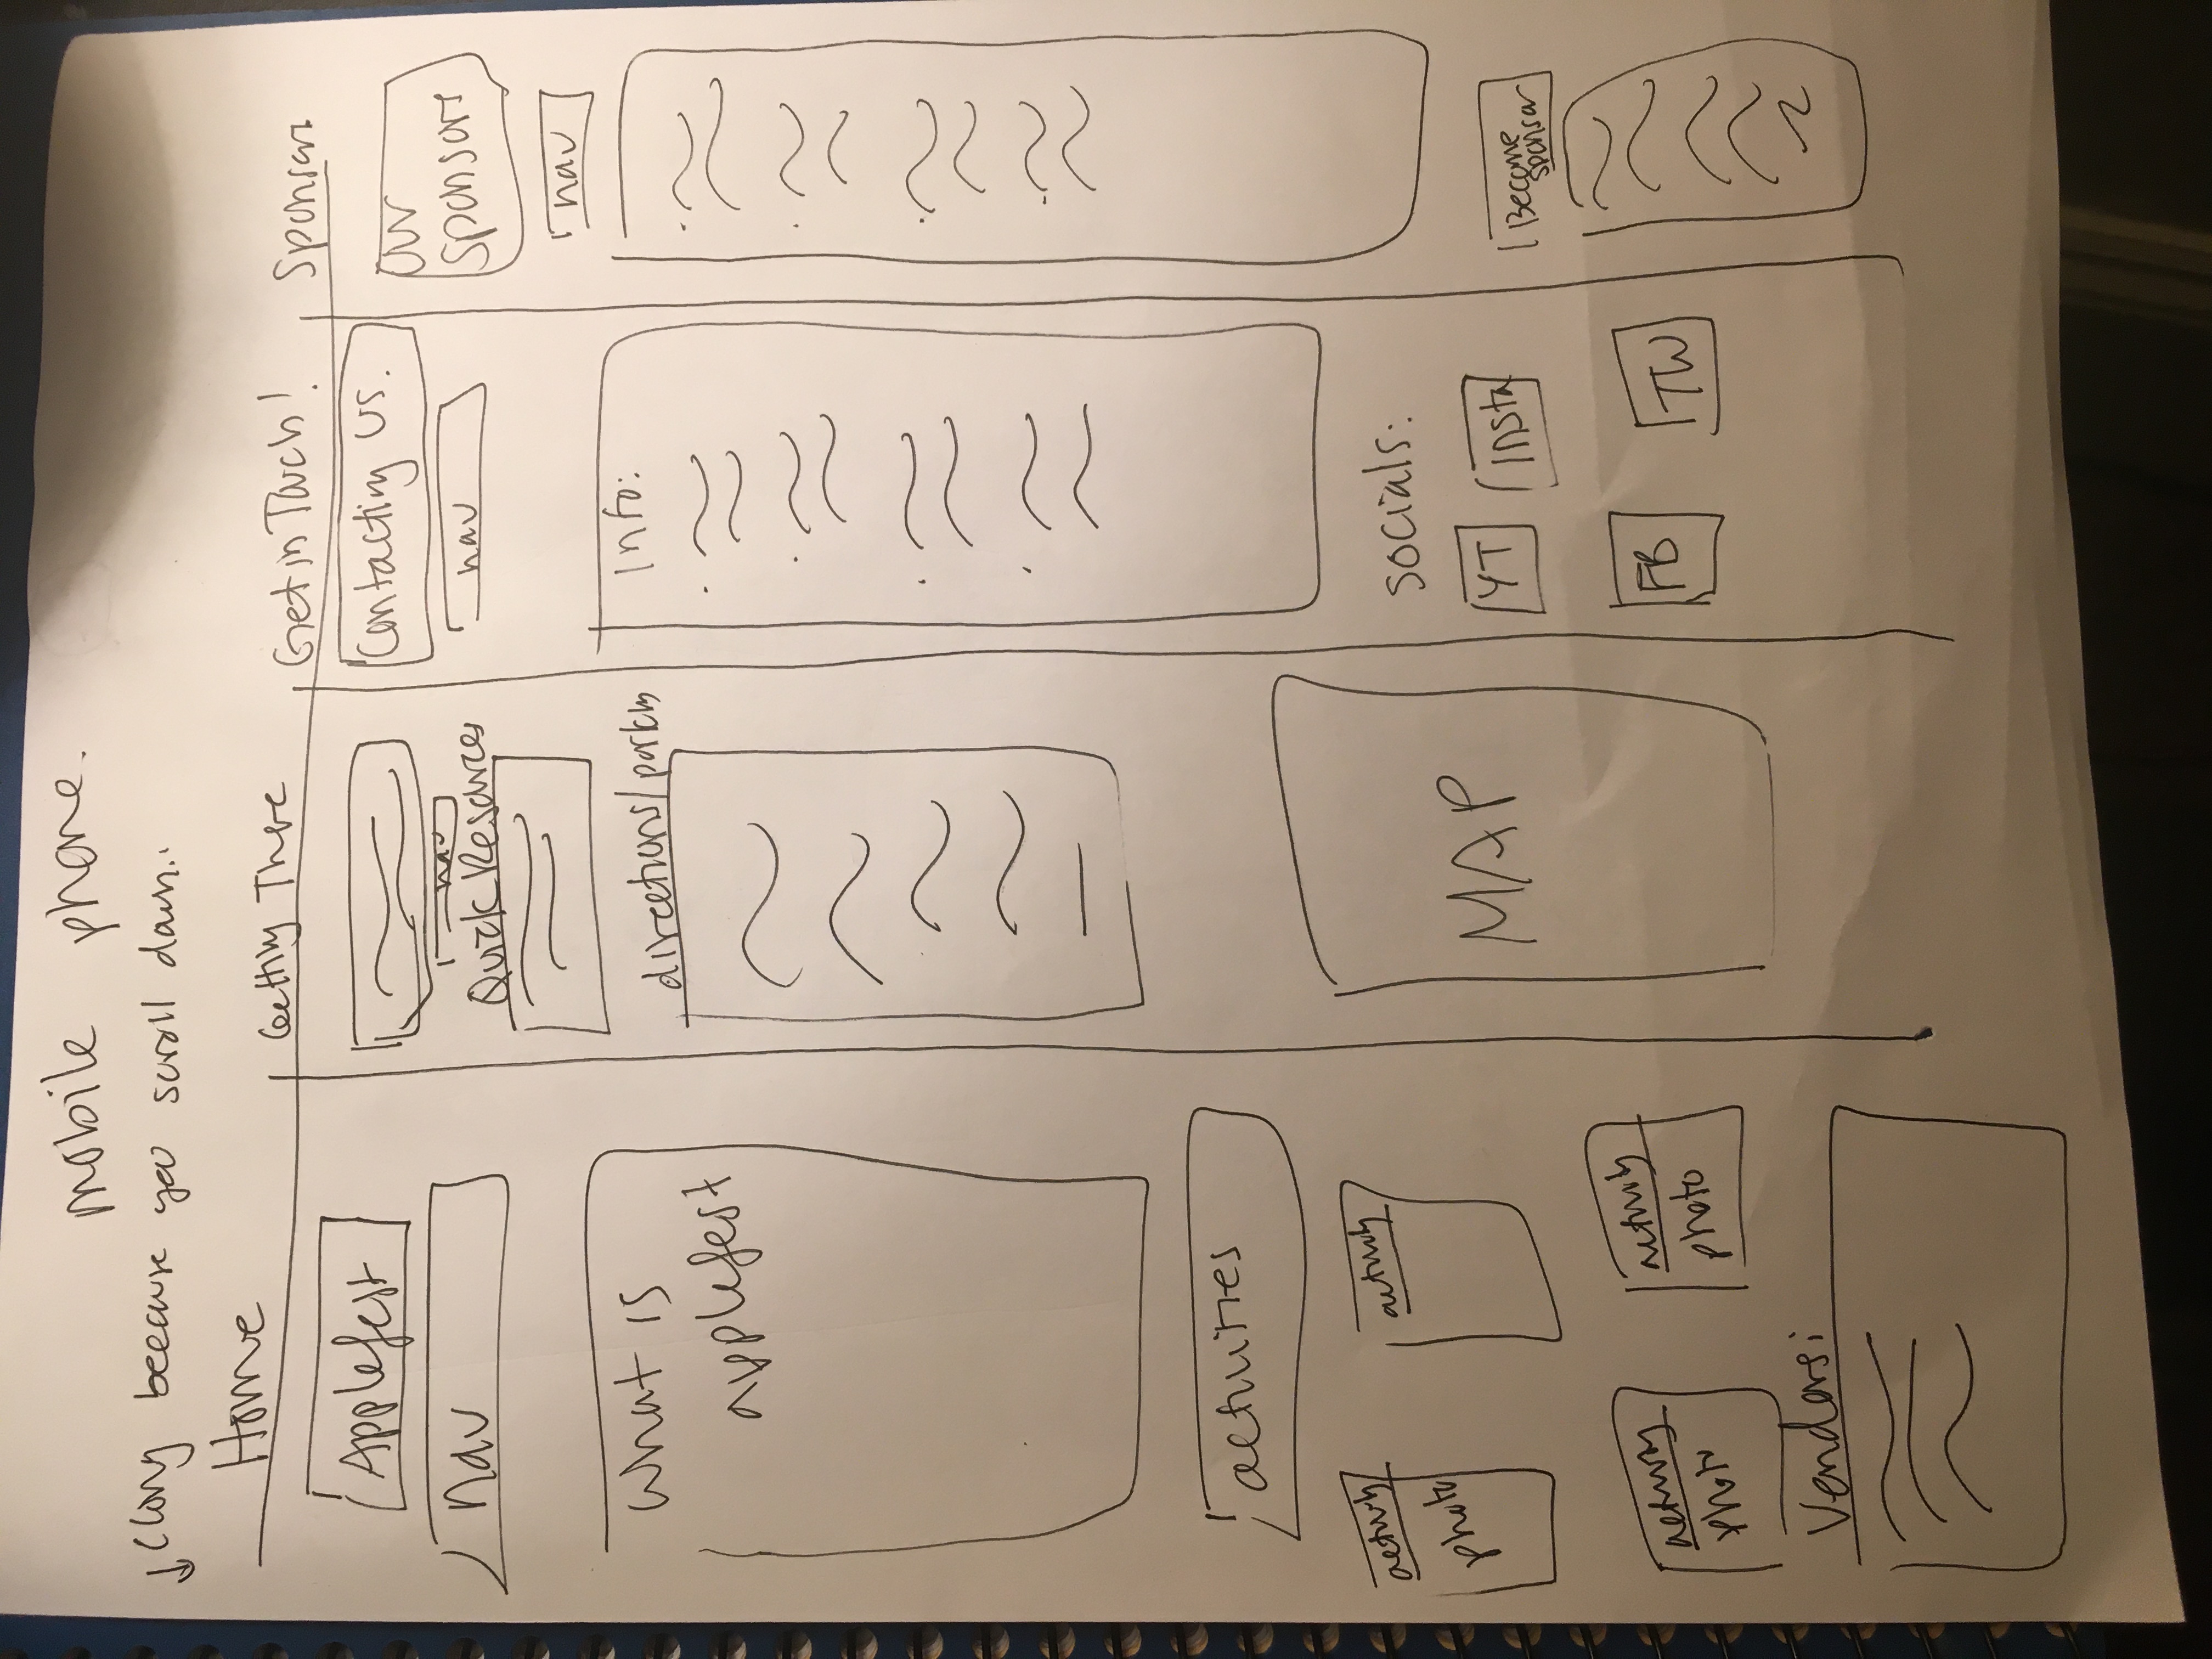 mobile phone.
↓ (long beecause you scroll down..
Home
Applefest
nav
What is
applefest
activities
activity
photo
activity
activity
photo
activity
photo
Vendors:
Getting There
nav
Quick Resources
directions/parking
MAP
Get in Touch!
Contacting Us.
nav
Info:
socials:
YT
insta
FB
TW
Sponsors
our
sponsors
nav
Become
sponsor